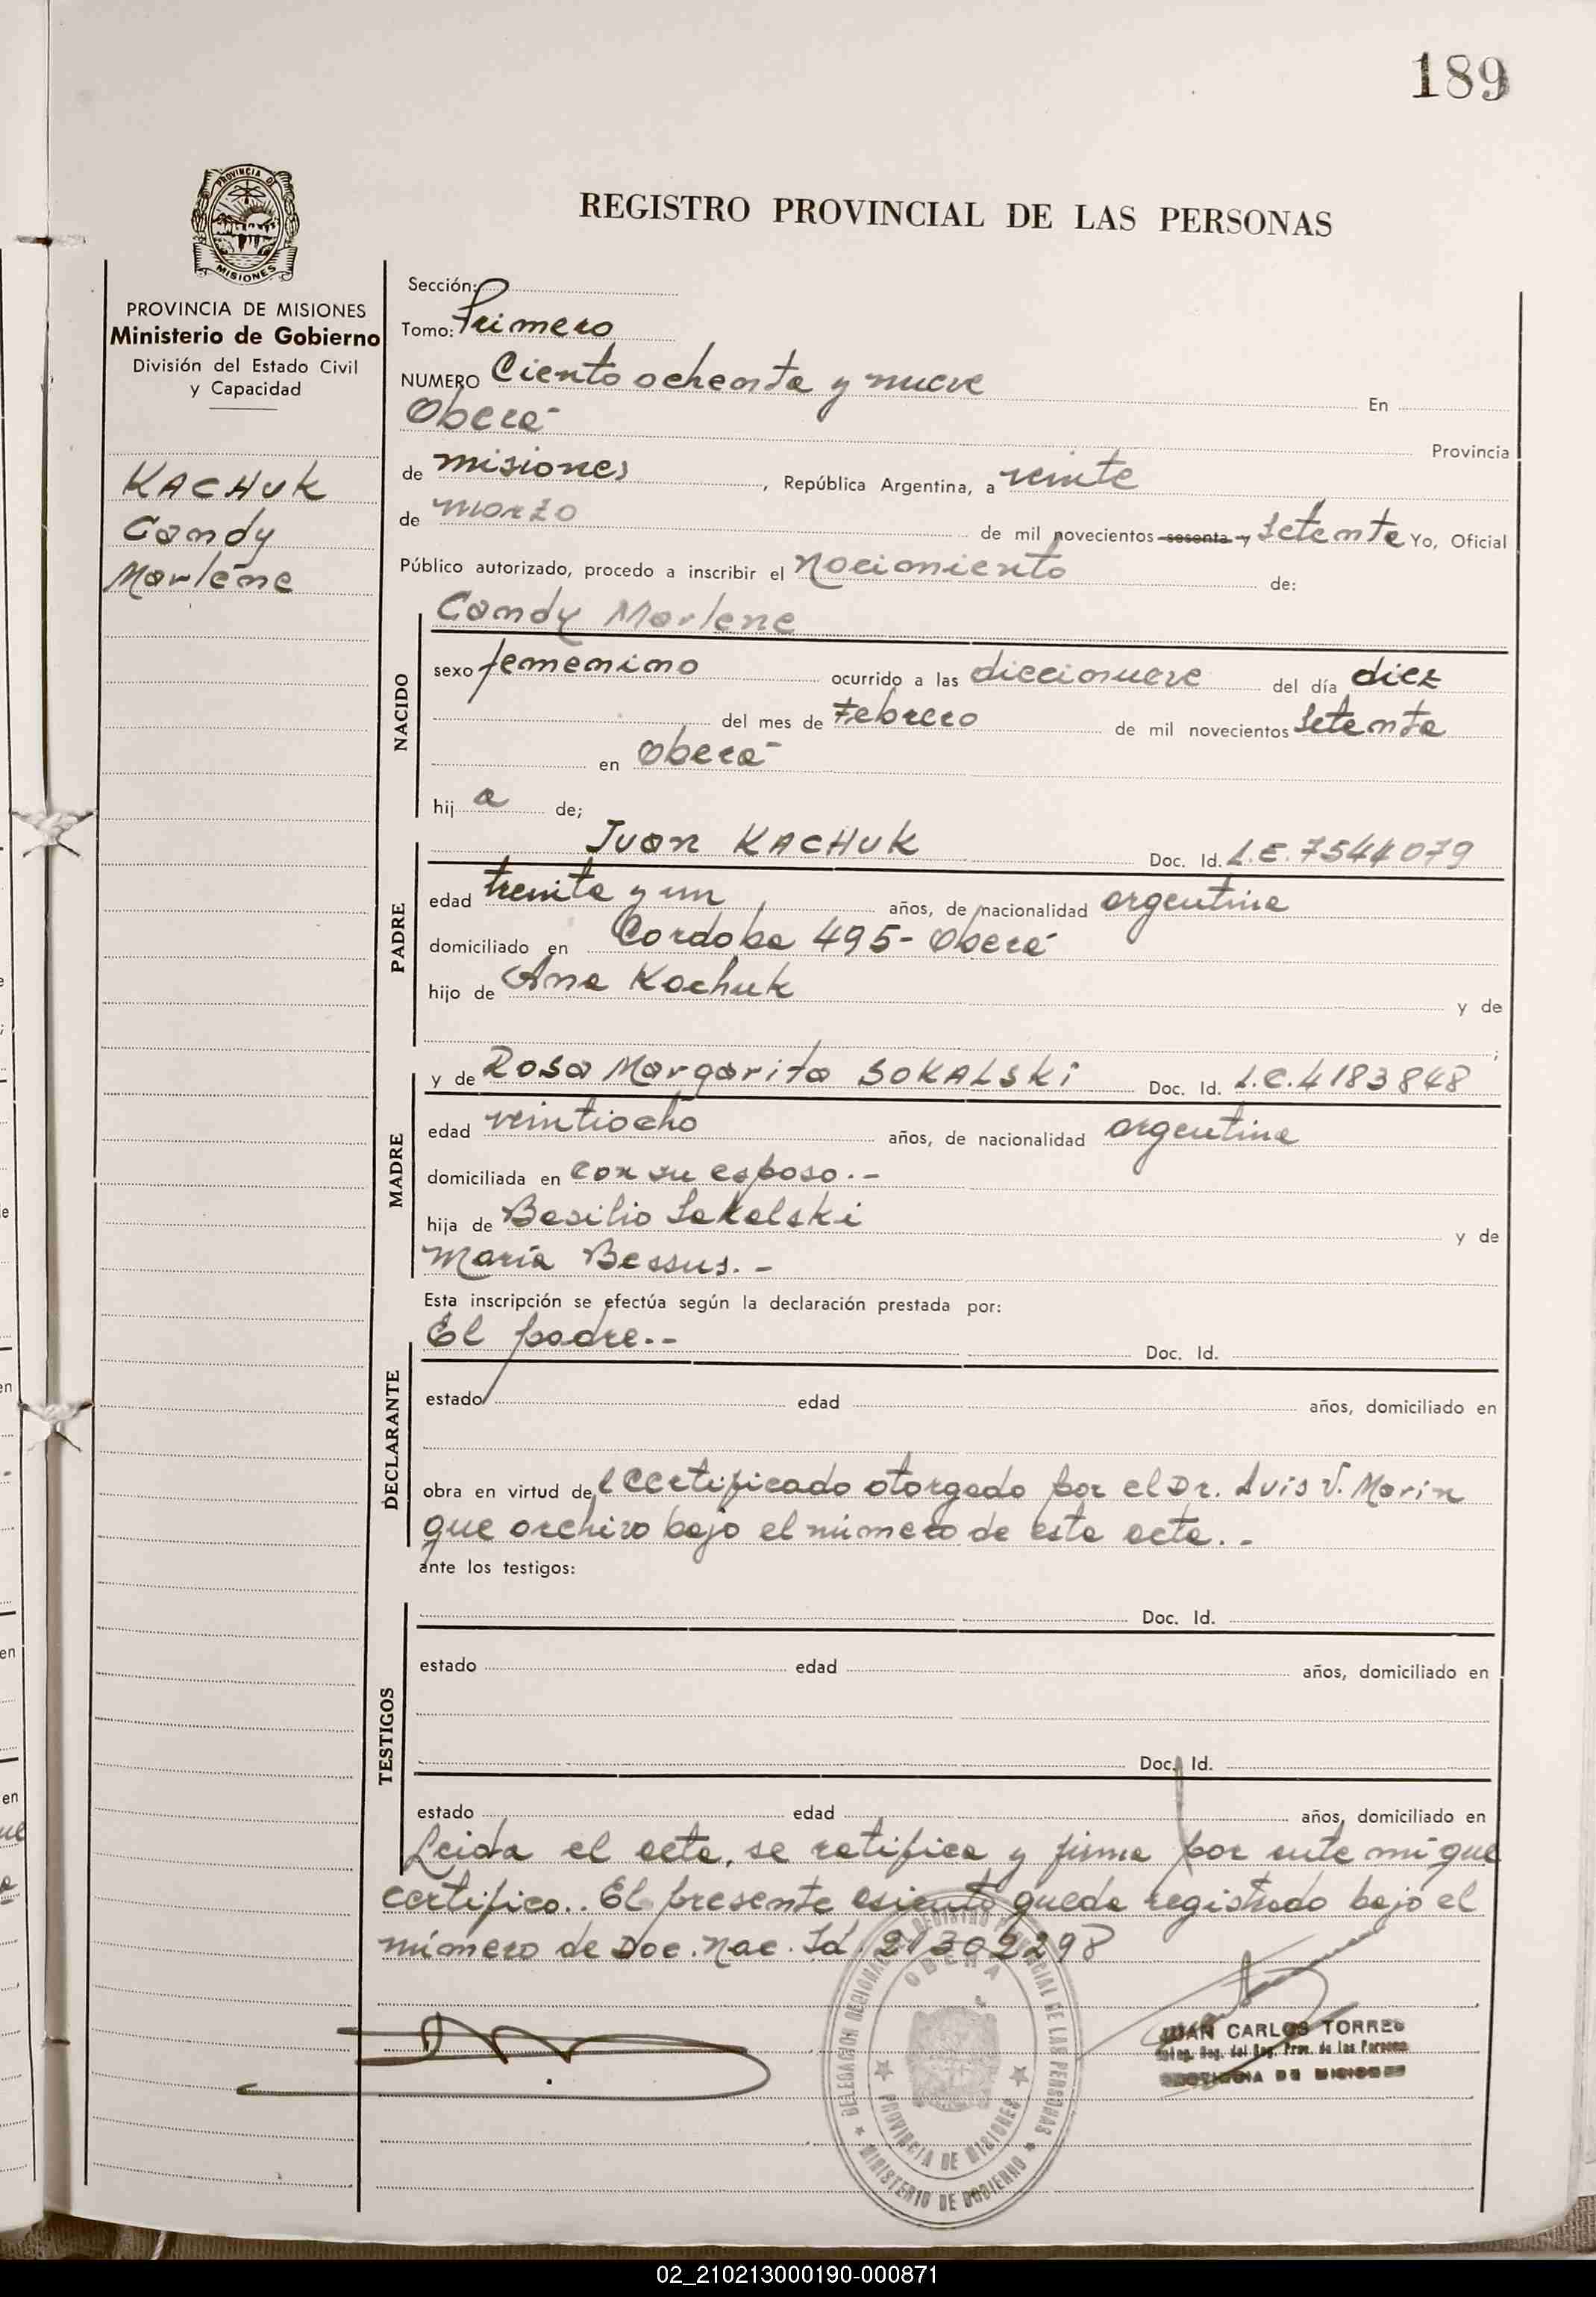 189
PROVINCIA DE
MISIONES
REGISTRO PROVINCIAL DE LAS PERSONAS
PROVINCIA DE MISIONES
Ministerio de Gobierno
División del Estado Civil
y Capacidad
KACHUK
Candy
Marlene
Sección:
Tomo: Primero
NUMERO Ciento ochenta y nueve En
Oberá Provincia
de misiones, República Argentina, a veinte
de marzo de mil novecientos sesenta y setenta Yo, Oficial
Público autorizado, procedo a inscribir el nacimiento de:
Candy Marlene
NACIDO
sexo femenino ocurrido a las diecinueve del día diez
del mes de Febrero de mil novecientos setenta
en Oberá
hij a de;
PADRE
Juan KACHUK Doc. Id. L.E. 7544079
edad treinta y un años, de nacionalidad argentina
domiciliado en Cordoba 495- Oberá
hijo de Ana Kachuk y de
;
MADRE
y de Rosa Margarita SOKALSKI Doc. Id. L.C. 4183848
edad veintiocho años, de nacionalidad argentina
domiciliada en con su esposo.-
hija de Basilio Sakalski y de
María Bessus.-
Esta inscripción se efectúa según la declaración prestada por:
DECLARANTE
El padre.-- Doc. Id.
estado edad años, domiciliado en
obra en virtud de l certificado otorgado por el Dr. Luis V. Marin
que archivo bajo el número de esta acta. -
ante los testigos:
TESTIGOS
Doc. Id.
estado edad años, domiciliado en
Doc. Id.
estado edad años, domiciliado en
Leida el acta, se ratifica y firma por ante mí que
certifico.. El presente asiento queda registrado bajo el
número de Doc. Nac. Id. 21302298
DELEGACION REGIONAL REGISTRO PROVINCIAL DE LAS PERSONAS
OBERA
PROVINCIA DE MISIONES
MINISTERIO DE GOBIERNO
JUAN CARLOS TORRES
Deleg. Reg. del Reg. Prov. de las Personas
PROVINCIA DE MISIONES
02_210213000190-000871